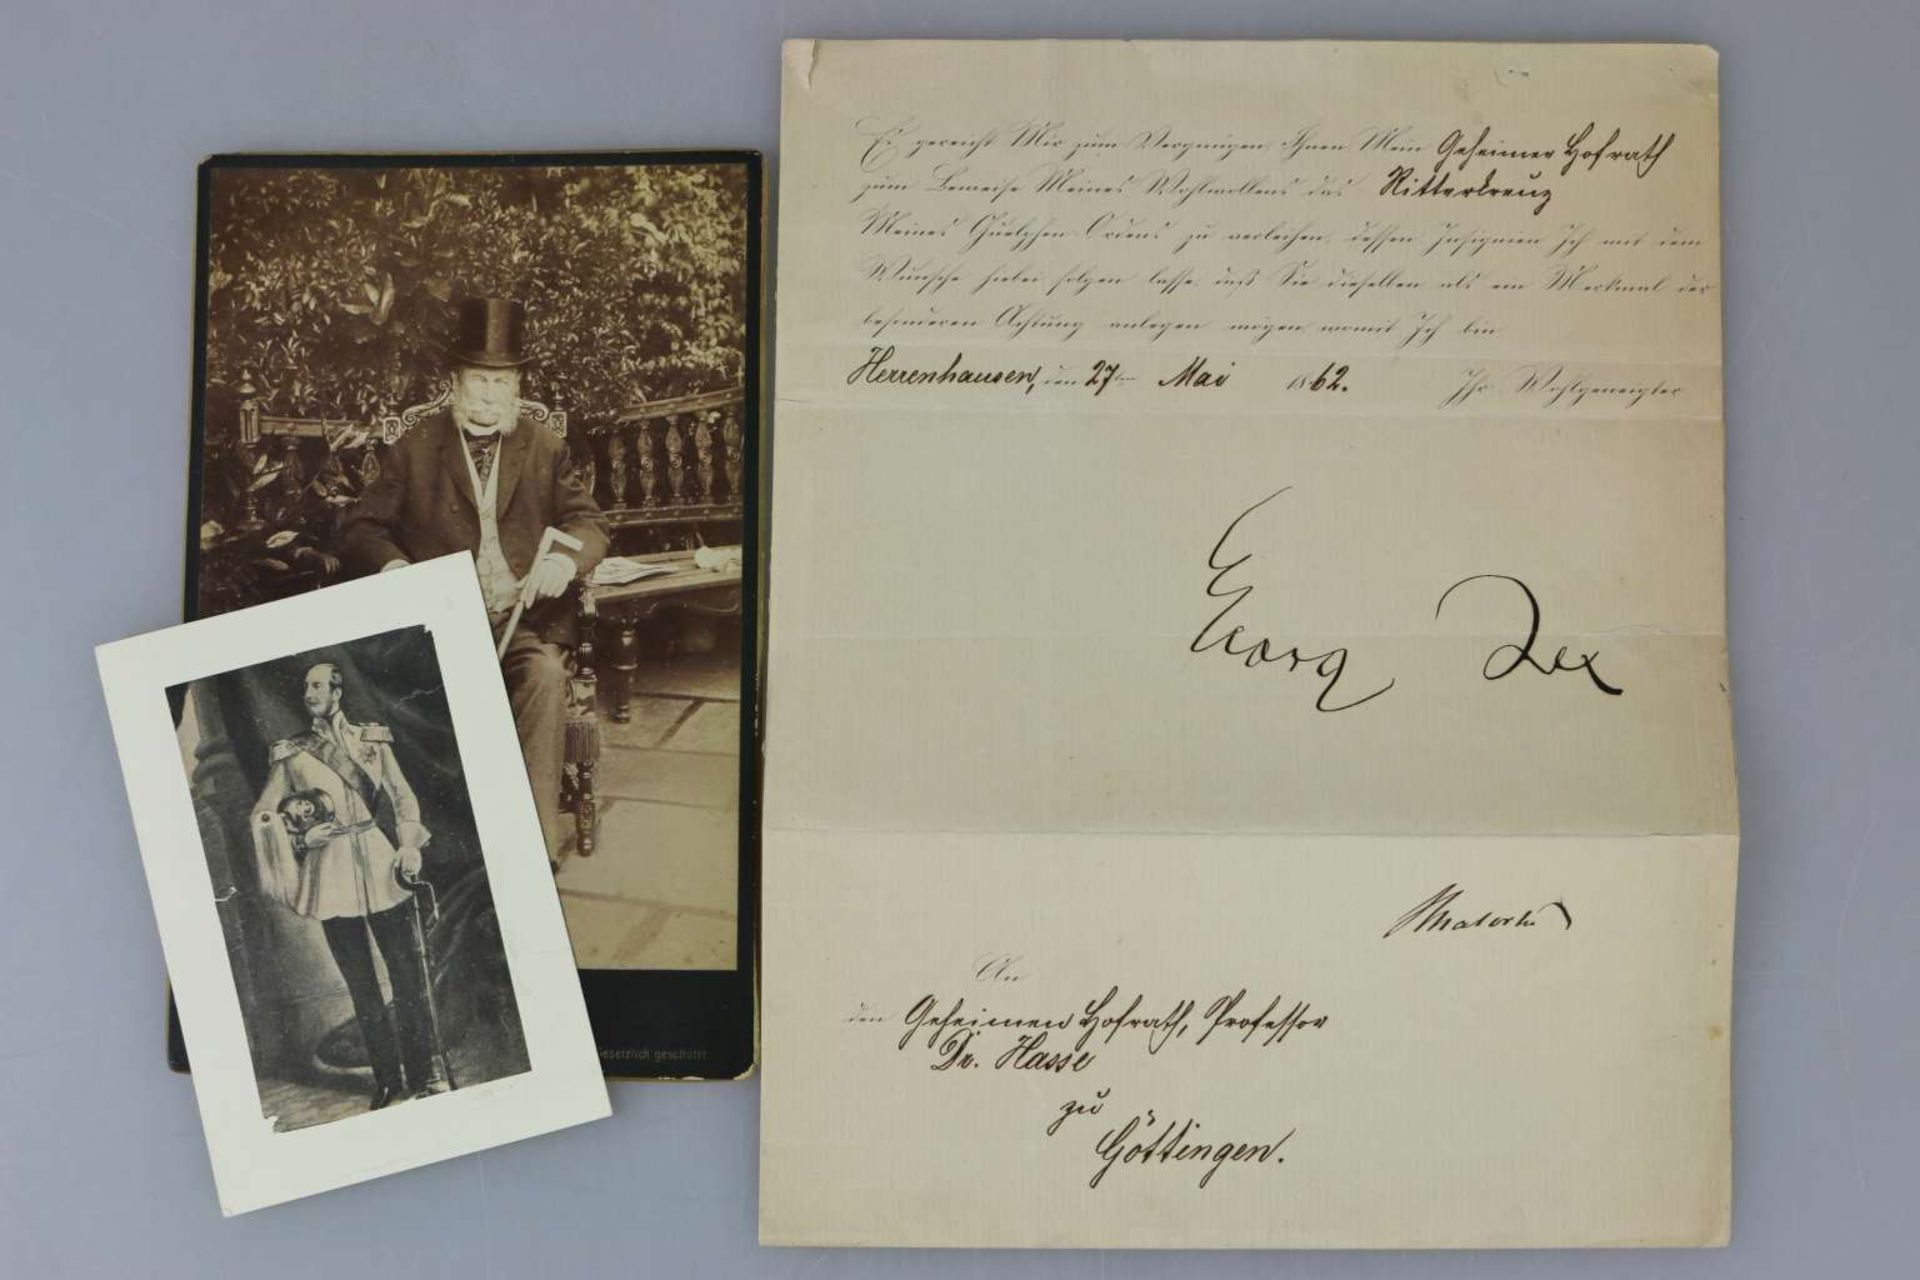 Es gereicht Mir zum Vergnügen, Ihnen Mein Geheimer Hofrath
zum Beweise Meines Wohlwollens das Ritterkreuz
Meines Guelphen-Ordens zu verleihen, dessen Insignien Ich mit dem
Wunsche hiebei folgen lasse, daß Sie dieselben als ein Merkmal der
besonderen Achtung anlegen mögen, womit Ich bin
Herrenhausen, den 27ten Mai 1862. Ihr Wohlgeneigter
Georg Rex
Malortie
An
den Geheimen Hofrath, Professor
Dr. Hasse
zu
Göttingen.
Gesetzlich geschützt